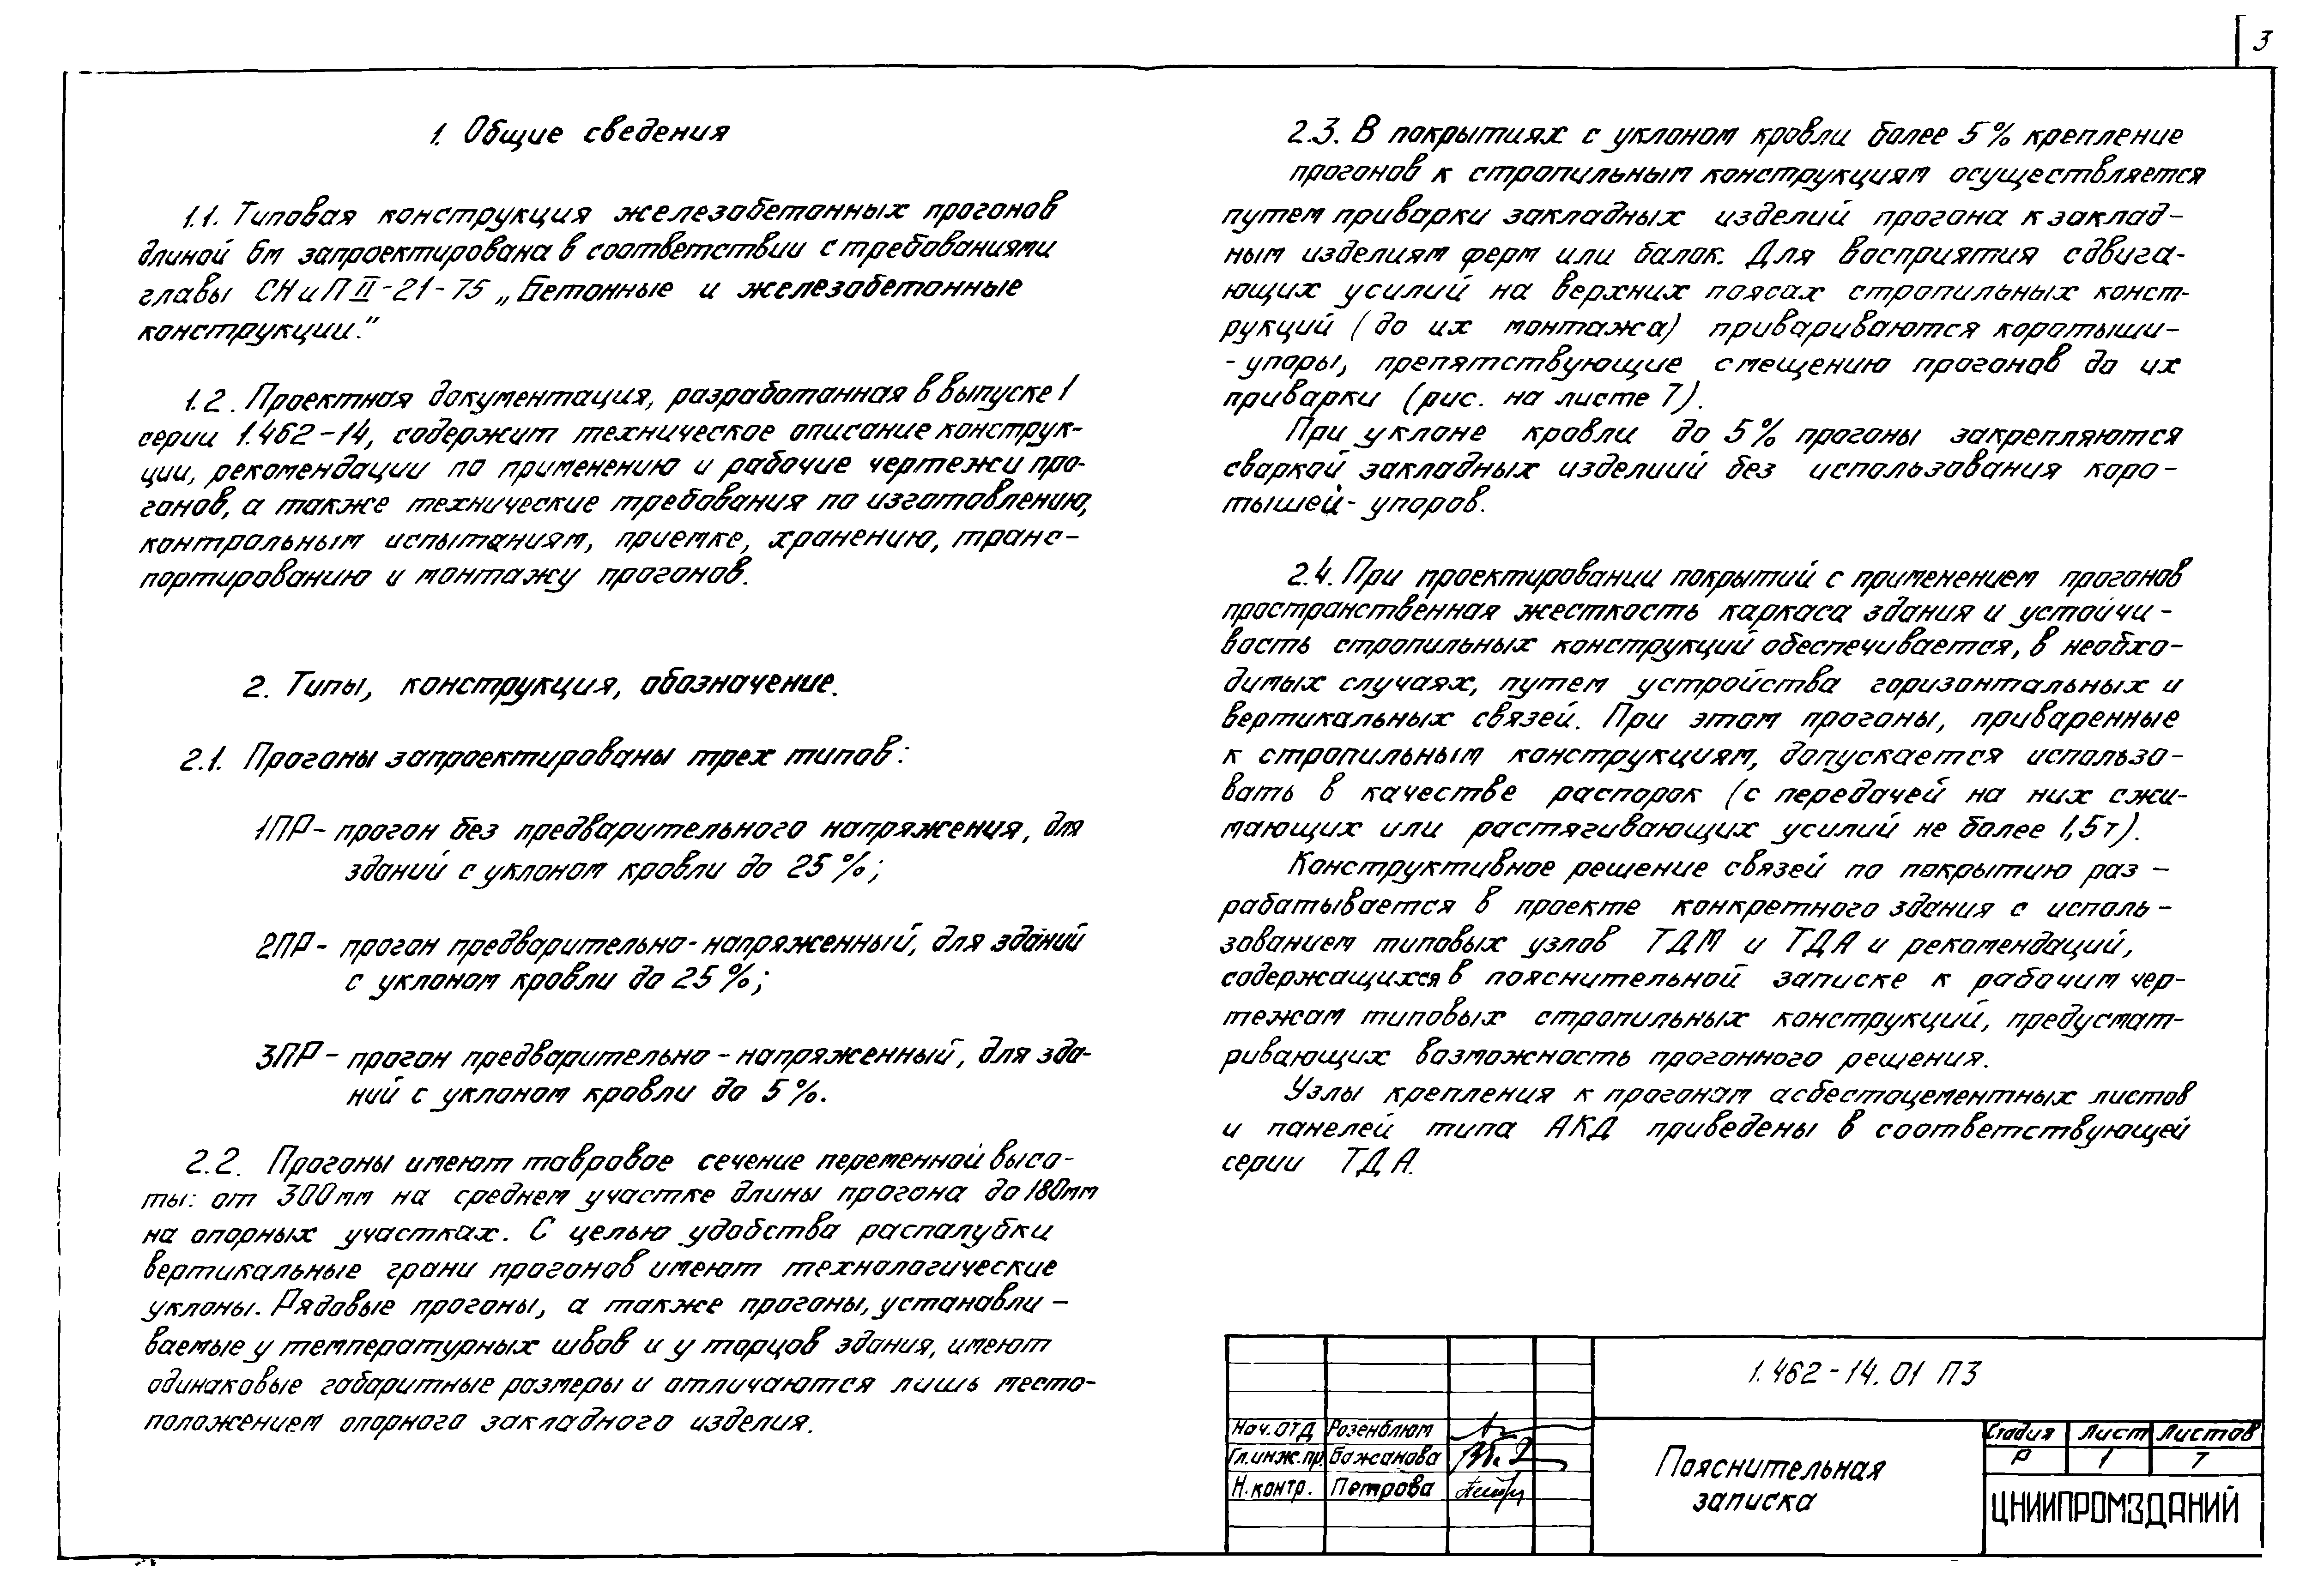 3
1. Общие сведения
1.1. Типовая конструкция железобетонных прогонов
длиной 6м запроектирована в соответствии с требованиями
главы СНиП II-21-75 „Бетонные и железобетонные
конструкции."
1.2. Проектная документация, разработанная в выпуске 1
серии 1.462-14, содержит техническое описание конструк-
ции, рекомендации по применению и рабочие чертежи про-
гонов, а также технические требования по изготовлению,
контрольным испытаниям, приемке, хранению, транс-
портированию и монтажу прогонов.
2. Типы, конструкция, обозначение.
2.1. Прогоны запроектированы трех типов:
1ПР- прогон без предварительного напряжения, для
зданий с уклоном кровли до 25%;
2ПР- прогон предварительно-напряженный, для зданий
с уклоном кровли до 25%;
3ПР- прогон предварительно-напряженный, для зда-
ний с уклоном кровли до 5%.
2.2. Прогоны имеют тавровое сечение переменной высо-
ты: от 300мм на среднем участке длины прогона до 180мм
на опорных участках. С целью удобства распалубки
вертикальные грани прогонов имеют технологические
уклоны. Рядовые прогоны, а также прогоны, устанавли-
ваемые у температурных швов и у торцов здания, имеют
одинаковые габаритные размеры и отличаются лишь место-
положением опорного закладного изделия.
2.3. В покрытиях с уклоном кровли более 5% крепление
прогонов к стропильным конструкциям осуществляется
путем приварки закладных изделий прогона к заклад-
ным изделиям ферм или балок. Для восприятия сдвига-
ющих усилий на верхних поясах стропильных конст-
рукций (до их монтажа) привариваются коротыши-
-упоры, препятствующие смещению прогонов до их
приварки (рис. на листе 7).
При уклоне кровли до 5% прогоны закрепляются
сваркой закладных изделиий без использования коро-
тышей-упоров.
2.4. При проектировании покрытий с применением прогонов
пространственная жесткость каркаса здания и устойчи-
вость стропильных конструкций обеспечивается, в необхо-
димых случаях, путем устройства горизонтальных и
вертикальных связей. При этом прогоны, приваренные
к стропильным конструкциям, допускается использо-
вать в качестве распорок (с передачей на них сжи-
мающих или растягивающих усилий не более 1,5т).
Конструктивное решение связей по покрытию раз-
рабатывается в проекте конкретного здания с исполь-
зованием типовых узлов ТДМ и ТДА и рекомендаций,
содержащихся в пояснительной записке к рабочим чер-
тежам типовых стропильных конструкций, предусмат-
ривающих возможность прогонного решения.
Узлы крепления к прогонам асбестоцементных листов
и панелей типа АКД приведены в соответствующей
серии ТДА.
1.462-14.01 ПЗ
Нач.ОТД Розенблюм
Гл.инж.пр. Бажанова
Н.контр. Петрова
Пояснительная
записка
Стадия Лист Листов
Р 1 7
ЦНИИПРОМЗДАНИЙ